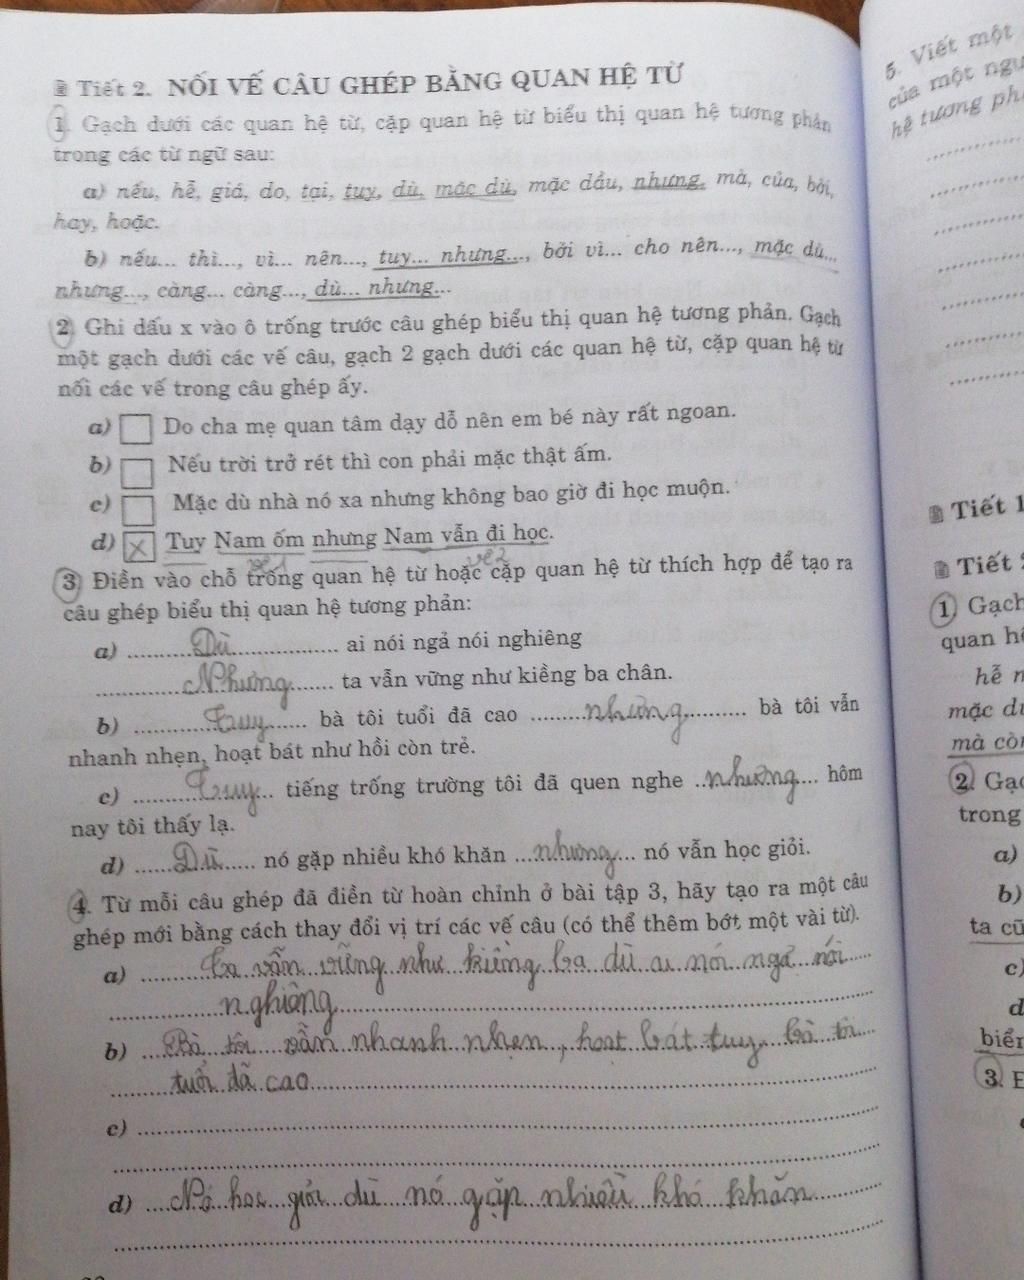 Tiết 2. NỐI VẾ CÂU GHÉP BẰNG QUAN HỆ TỪ
1. Gạch dưới các quan hệ từ, cặp quan hệ từ biểu thị quan hệ tương phản
trong các từ ngữ sau:
a) nếu, hễ, giá, do, tại, tuy, dù, mặc dù, mặc dầu, nhưng, mà, của, bởi,
hay, hoặc.
b) nếu... thì..., vì... nên..., tuy... nhưng..., bởi vì... cho nên..., mặc dù...
nhưng..., càng... càng..., dù... nhưng...
2. Ghi dấu x vào ô trống trước câu ghép biểu thị quan hệ tương phản. Gạch
một gạch dưới các vế câu, gạch 2 gạch dưới các quan hệ từ, cặp quan hệ từ
nối các vế trong câu ghép ấy.
a) Do cha mẹ quan tâm dạy dỗ nên em bé này rất ngoan.
b) Nếu trời trở rét thì con phải mặc thật ấm.
c) Mặc dù nhà nó xa nhưng không bao giờ đi học muộn.
d) x Tuy Nam ốm nhưng Nam vẫn đi học.
vế 1 vế 2
3. Điền vào chỗ trống quan hệ từ hoặc cặp quan hệ từ thích hợp để tạo ra
câu ghép biểu thị quan hệ tương phản:
a) ...Dù... ai nói ngả nói nghiêng
...Nhưng... ta vẫn vững như kiềng ba chân.
b) ...Tuy... bà tôi tuổi đã cao ...nhưng... bà tôi vẫn
nhanh nhẹn, hoạt bát như hồi còn trẻ.
c) ...Tuy... tiếng trống trường tôi đã quen nghe ...nhưng... hôm
nay tôi thấy lạ.
d) ...Dù... nó gặp nhiều khó khăn ...nhưng... nó vẫn học giỏi.
4. Từ mỗi câu ghép đã điền từ hoàn chỉnh ở bài tập 3, hãy tạo ra một câu
ghép mới bằng cách thay đổi vị trí các vế câu (có thể thêm bớt một vài từ).
a) Ta vẫn vững như kiềng ba dù ai nói ngả nói
nghiêng
b) Bà tôi vẫn nhanh nhẹn, hoạt bát tuy bà tôi
tuổi đã cao
c)
d) Nó học giỏi dù nó gặp nhiều khó khăn
5. Viết một
của một
hệ tương
Tiết
Tiết
1. Gạch
quan
hễ
mặc
mà
2.
trong
a)
b)
ta
c)
d
3.